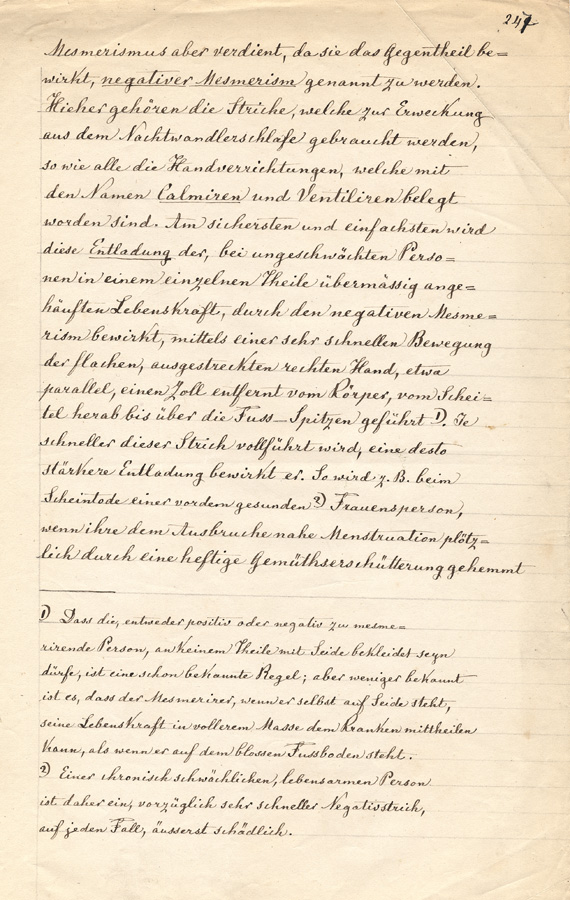 247
Mesmerismus aber verdient, da sie das Gegentheil be=
wirkt, negativer Mesmerism genannt zu werden.
Hieher gehören die Striche, welche zur Erweckung
aus dem Nachtwandlerschlafe gebraucht werden,
so wie alle die Handverrichtungen, welche mit
den Namen Calmiren und Ventiliren belegt
worden sind. Am sichersten und einfachsten wird
diese Entladung der, bei ungeschwächten Perso=
nen in einem einzelnen Theile übermässig ange=
häuften Lebenskraft, durch den negativen Mesme=
rism bewirkt, mittels einer sehr schnellen Bewegung
der flachen, ausgestreckten rechten Hand, etwa
parallel, einen Zoll entfernt vom Körper, vom Schei=
tel herab bis über die Fuss-Spitzen geführt 1). Je
schneller dieser Strich vollführt wird, eine desto
stärkere Entladung bewirkt er. So wird z. B. beim
Scheintode einer vordem gesunden 2) Frauensperson,
wenn ihre dem Ausbruche nahe Menstruation plötz=
lich durch eine heftige Gemüthserschütterung gehemmt
1) Dass die, entweder positiv oder negativ zu mesme=
rirende Person, an keinem Theile mit Seide bekleidet seyn
dürfe, ist eine schon bekannte Regel; aber weniger bekannt
ist es, dass der Mesmerirer, wenn er selbst auf Seide steht,
seine Lebenskraft in vollerem Masse dem Kranken mittheilen
kann, als wenn er auf dem blossen Fussboden steht.
2) Einer chronisch schwächlichen, lebensarmen Person
ist daher ein, vorzüglich sehr schneller Negativstrich,
auf jeden Fall, äusserst schädlich.